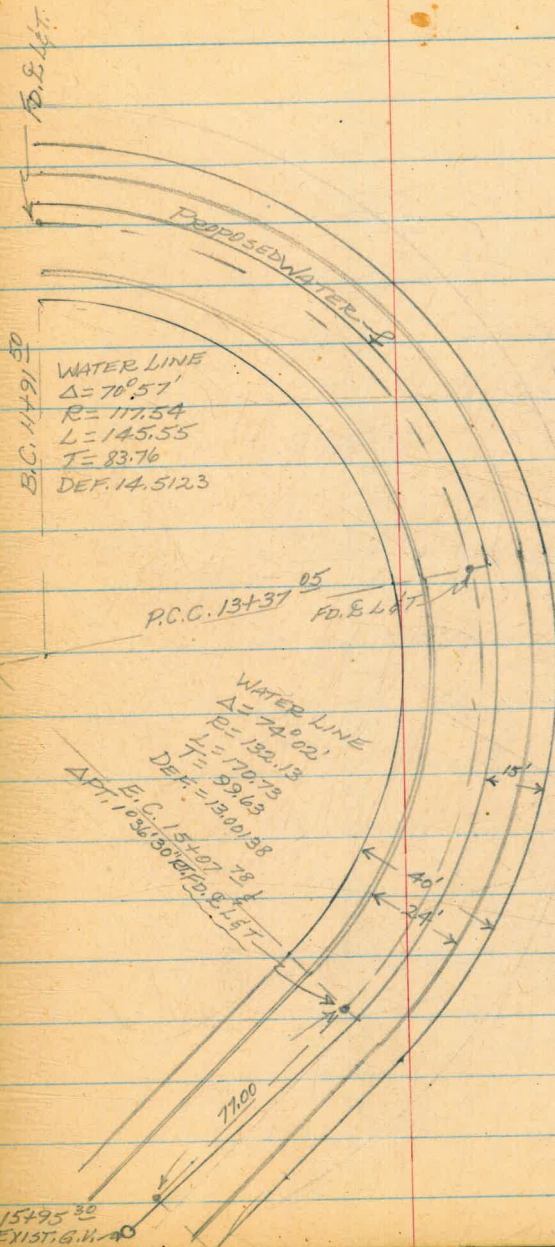 FD. ℄ L&T.
PROPOSED WATER ℄
B.C. 11+91 50
WATER LINE
Δ= 70°57'
R= 117.54
L= 145.55
T= 83.76
DEF. 14.5123
P.C.C. 13+37 05
FD. ℄ L&T
WATER LINE
Δ= 74°02'
R= 132.13
L= 170.73
T= 99.63
DEF. = 13.00138
E.C. 15+07 78
Δ PT. 1°36'30" RT. FD. ℄ L&T
15'
40'
24'
77.00
15+95 30
EXIST. G.V.